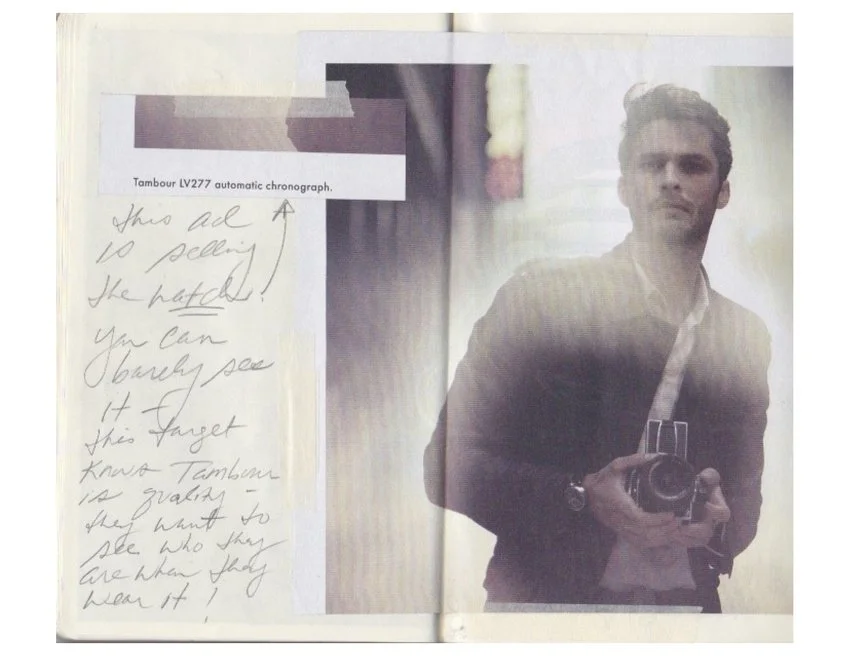 Tambour LV277 automatic chronograph.
This ad
is selling
the watch!
You can
barely see
it –
this target
knows Tambour
is quality –
they want to
see who they
are when they
wear it!